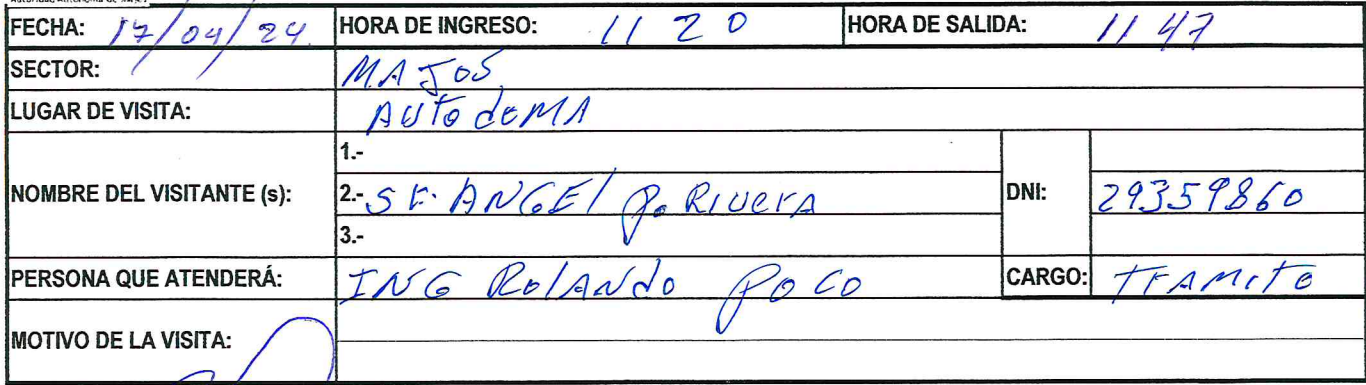 Autoridad Autónoma de Majes
FECHA: 17/04/24 HORA DE INGRESO: 11 20 HORA DE SALIDA: 11 47
SECTOR: MAJES
LUGAR DE VISITA: AUTodeMA
1.-
NOMBRE DEL VISITANTE (s): 2.- Sr. ANGEl P. RIVerA DNI: 29359860
3.-
PERSONA QUE ATENDERÁ: ING RolANdo POCO CARGO: TrAMITE
MOTIVO DE LA VISITA: